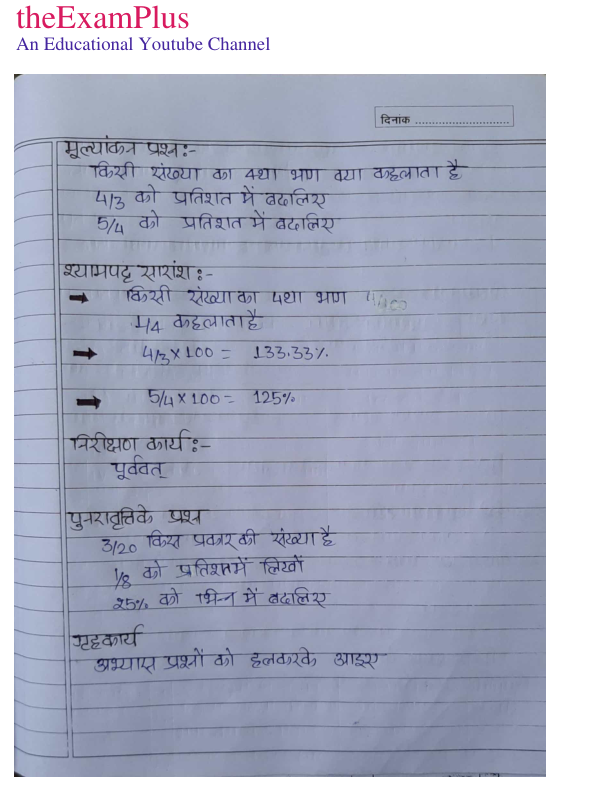 theExamPlus
An Educational Youtube Channel
दिनाक ............................
मूल्यांकन प्रश्न:-
किसी संख्या का 4था भाग क्या कहलाता है
4/3 को प्रतिशत में बदलिए
5/4 को प्रतिशत में बदलिए
श्यामपट्ट सारांश:-
➡ किसी संख्या का 4था भाग
1/4 कहलाता है
➡ 4/3 × 100 = 133.33%.
➡ 5/4 × 100 = 125%
निरीक्षण कार्य:-
पूर्ववत्
पुनरावृत्ति के प्रश्न
3/20 किस प्रकार की संख्या है
1/8 को प्रतिशत में लिखों
25% को भिन्न में बदलिए
गृहकार्य
अभ्यास प्रश्नों को हल करके आइए